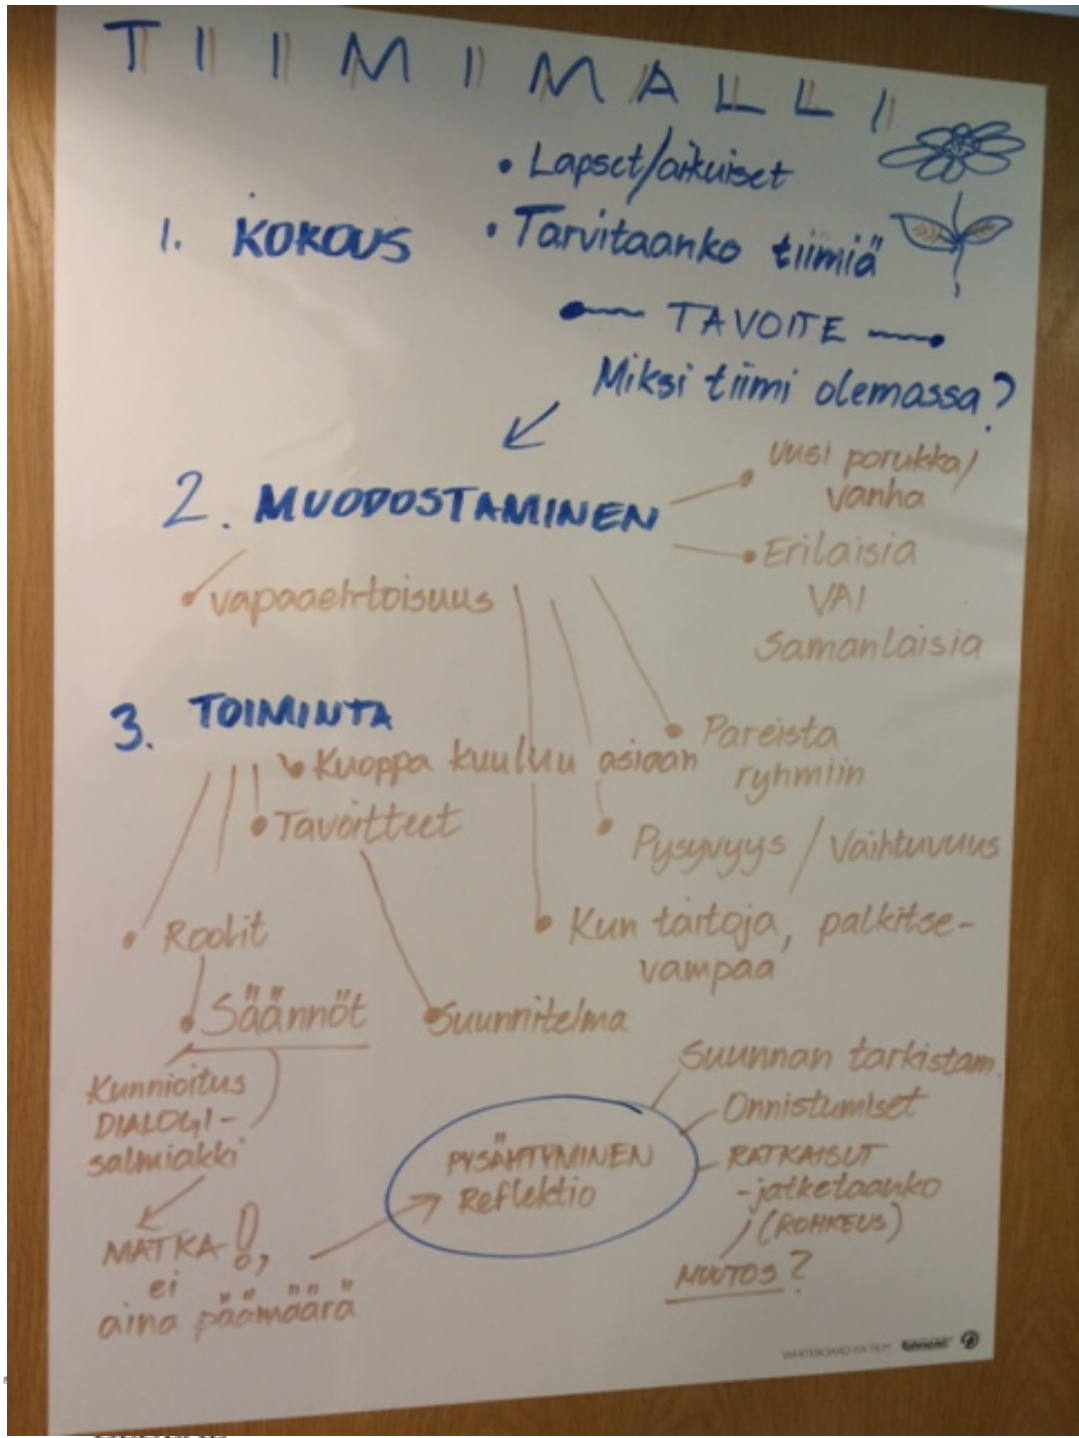 TIIMIMALLI
• Lapset/aikuiset
1. KOKOUS
• Tarvitaanko tiimiä
TAVOITE
Miksi tiimi olemassa?
2. MUODOSTAMINEN
• Uusi porukka/
vanha
• Erilaisia
VAI
samanlaisia
• vapaaehtoisuus
3. TOIMINTA
• Pareista
ryhmiin
• Kuoppa kuuluu asiaan
• Tavoitteet
• Pysyvyys / Vaihtuvuus
• Roolit
• Kun taitoja, palkitse-
vampaa
• Säännöt
• Suunnitelma
Kunnioitus
DIALOGI-
salmiakki
MATKA!,
ei
aina päämäärä
PYSÄHTYMINEN
Reflektio
Suunnan tarkistam.
Onnistumiset
RATKAISUT
-jatketaanko
(ROHKEUS)
MUUTOS?
WHITEBOARD FIX FILM